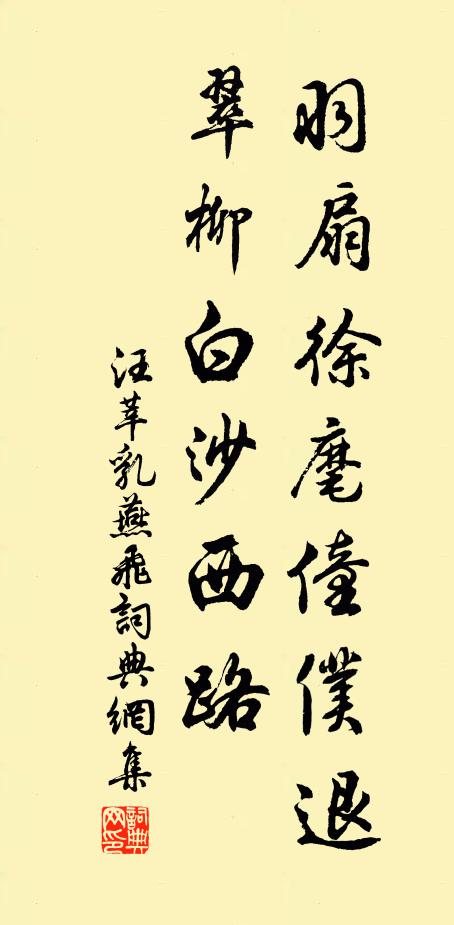 羽扇徐麾僮僕退
翠柳白沙西路
汪莘乳燕飛詞典網集
詞典网印